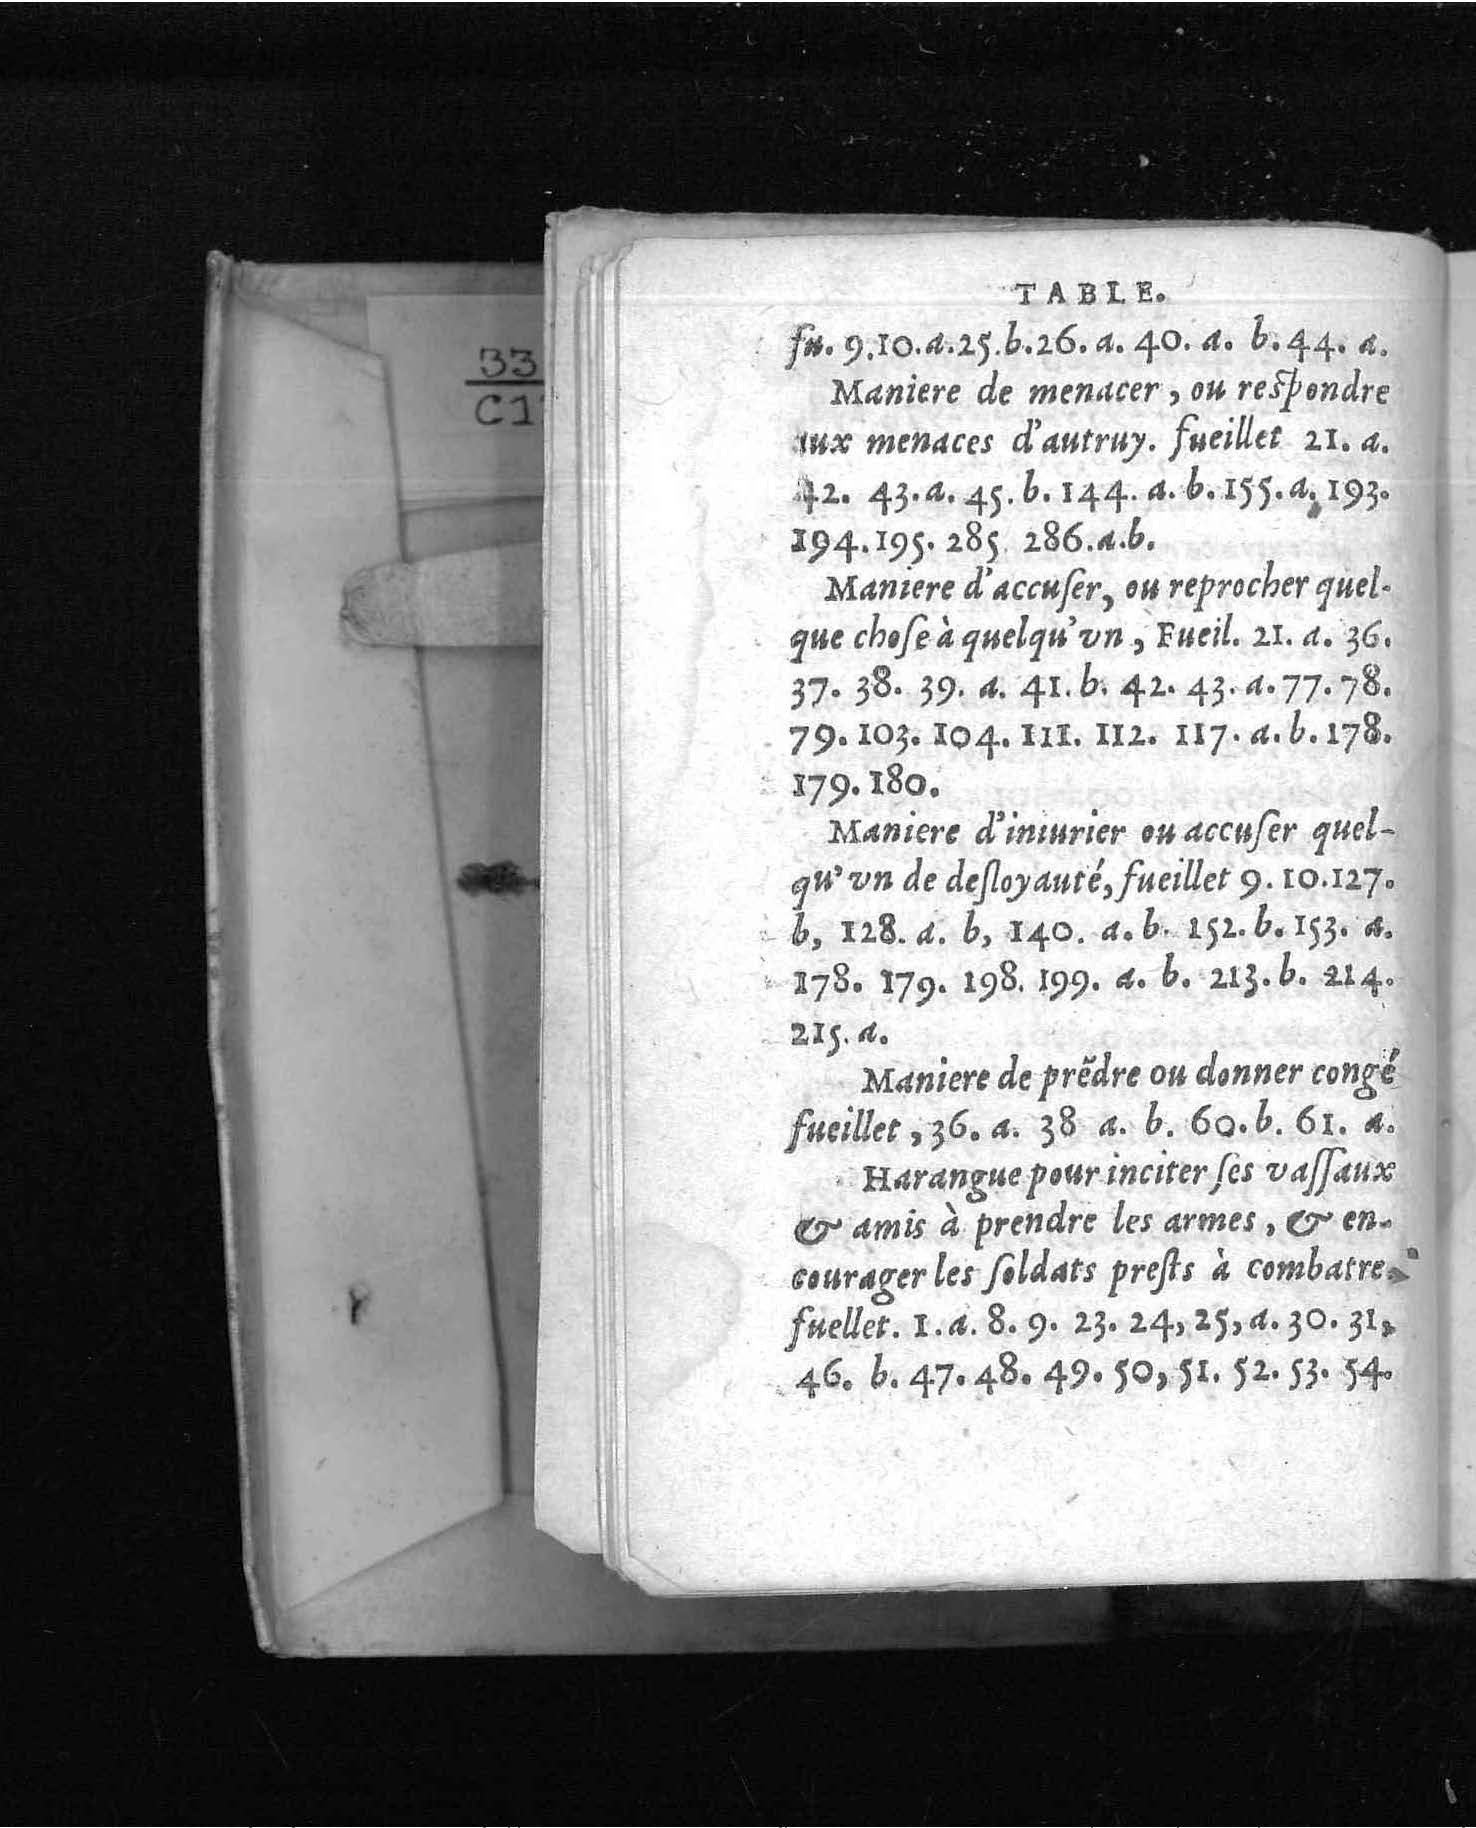 33
C1
TABLE.
fu. 9.10.a.25.b.26.a. 40. a. b. 44. a.
Maniere de menacer, ou reſpondre
aux menaces d'autruy. fueillet 21. a.
42. 43. a. 45. b. 144. a. b. 155. a. 193.
194. 195. 285 286.a.b.
Maniere d'accuſer, ou reprocher quel-
que choſe à quelqu'vn, Fueil. 21. a. 36.
37. 38. 39. a. 41. b. 42. 43. a. 77. 78.
79. 103. 104. 111. 112. 117. a. b. 178.
179. 180.
Maniere d'iniurier ou accuſer quel-
qu'vn de deſloyauté, fueillet 9. 10. 127.
b, 128. a. b, 140. a. b. 152. b. 153. a.
178. 179. 198. 199. a. b. 213. b. 214.
215. a.
Maniere de prẽdre ou donner congé
fueillet, 36. a. 38 a. b. 60. b. 61. a.
Harangue pour inciter ſes vaſſaux
& amis à prendre les armes, & en-
courager les ſoldats preſts à combatre.
fuellet. 1. a. 8. 9. 23. 24, 25, a. 30. 31,
46. b. 47. 48. 49. 50, 51. 52. 53. 54.